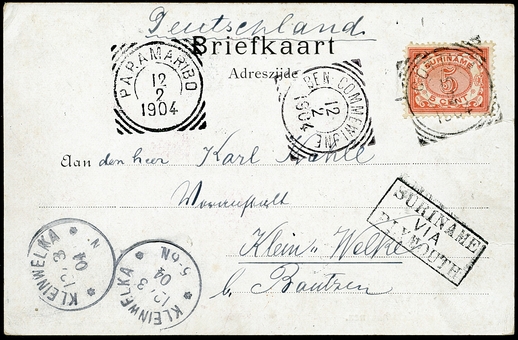 Deutschland
Briefkaart
Adreszijde
PARAMARIBO
12
2
1904
BEN. COMMEWIJNE
12
2
1904
SURINAME
5
5 CENT 5
1904
Aan den heer Karl
Klein-Welke
b. Bautzen
SURINAME
VIA
PLYMOUTH
KLEINWELKA
12.3
04
N
KLEINWELKA
12.3
04
5-6N.